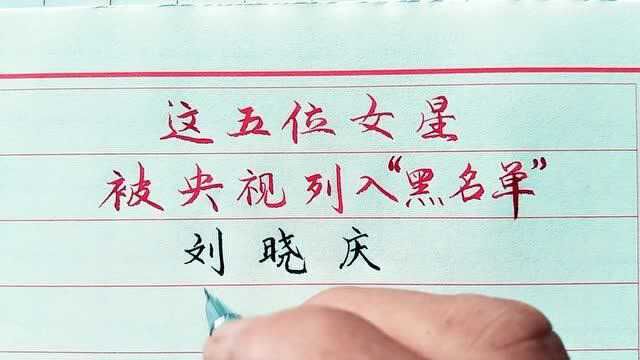 这五位女星
被央视列入“黑名单”
刘晓庆